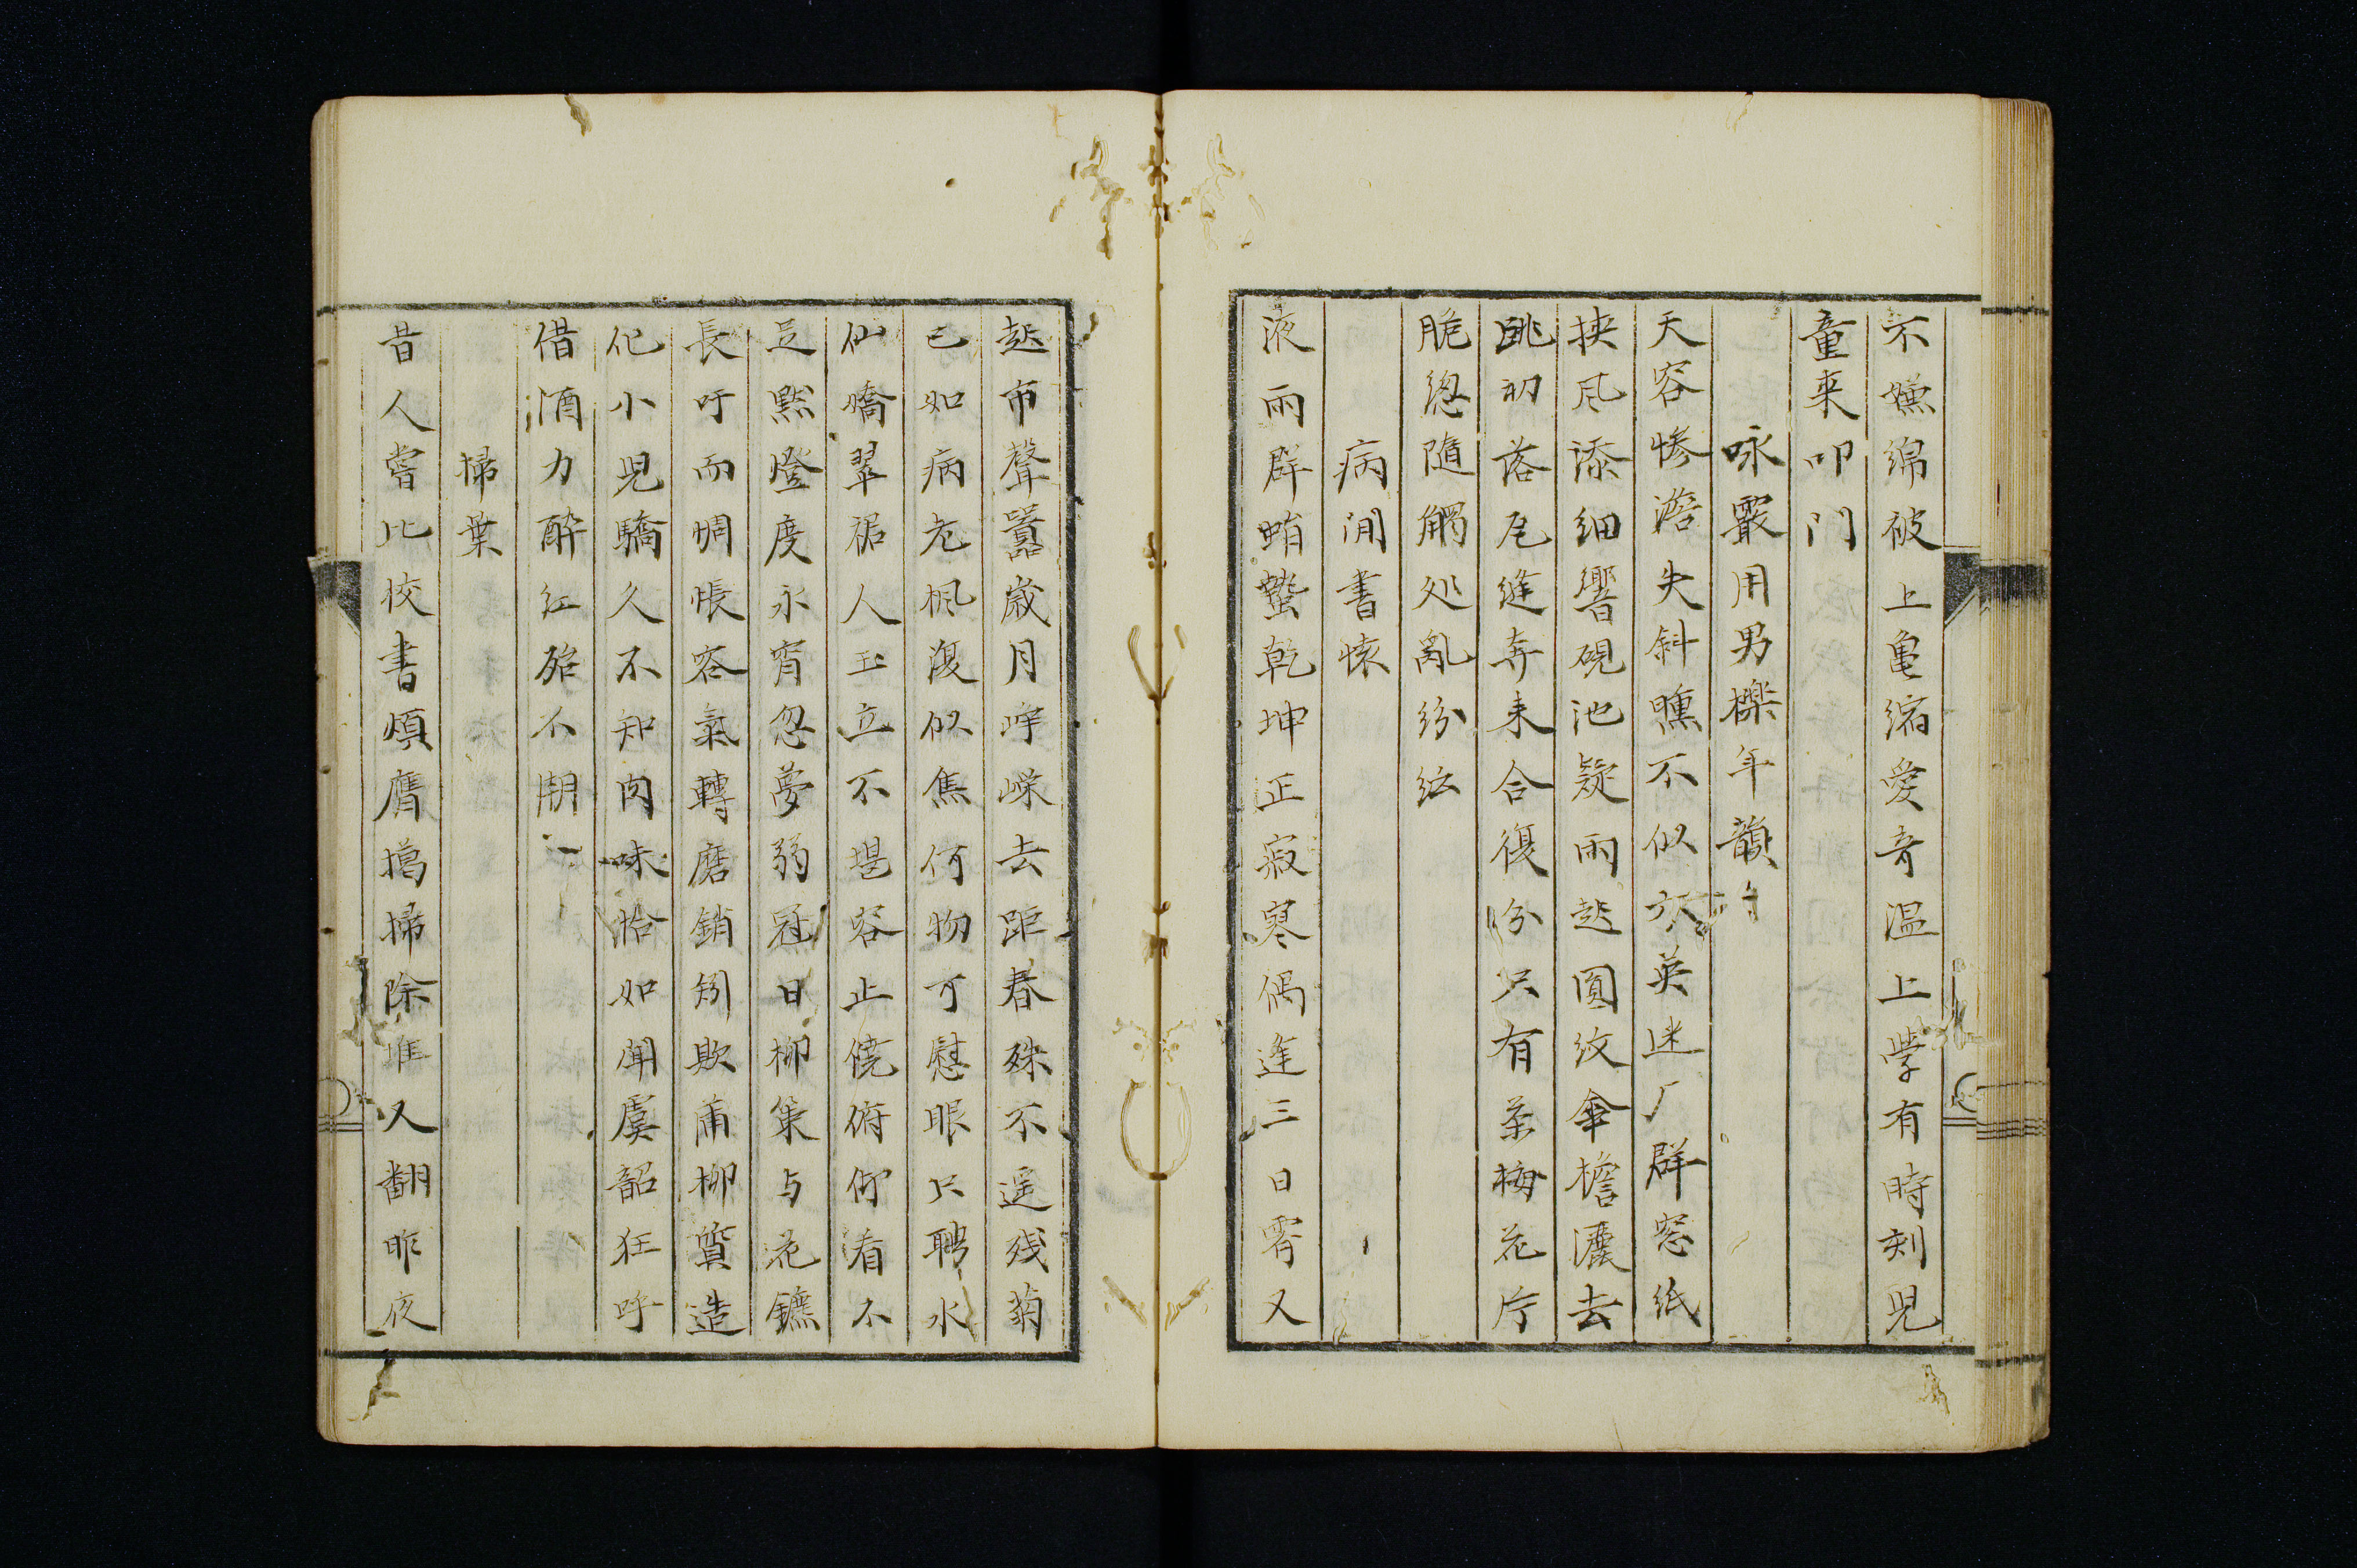 不嫌綿被上亀縮愛奇温上學有時刻児
童来叩門
咏霰用男櫟年韻
天容惨澹失斜曛不似六英迷厂群窓紙
挟风添细響硯池疑雨起圓紋傘檐灑去
跳初落瓦縫奔来合復分只有茶梅花片
脆怱随觸処乱紛紜
病间書懐
液雨群蛸蟄乾坤正寂寒偶逢三日霽又
起市聲囂歳月崢嶸去距春殊不遥残菊
已如病老枫復似焦何物可慰眼只聘水
仙嬌翠裾人玉立不堪容止僥俯仰看不
足點燈度永宵忽夢弱冠日柳策与花鑣
長吁而惆悵容氣轉磨銷矧欺莆柳質造
化小児驕久不知肉味恰如聞虞韶狂呼
借酒力酔紅殆不朋
掃葉
昔人嘗比校書煩膺揭掃除堆又翻昨夜